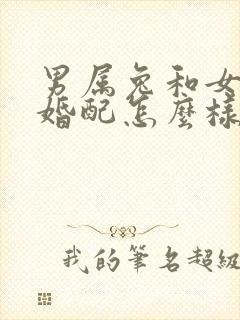 男属兔和女
婚配怎麼樣
我的筆名超級